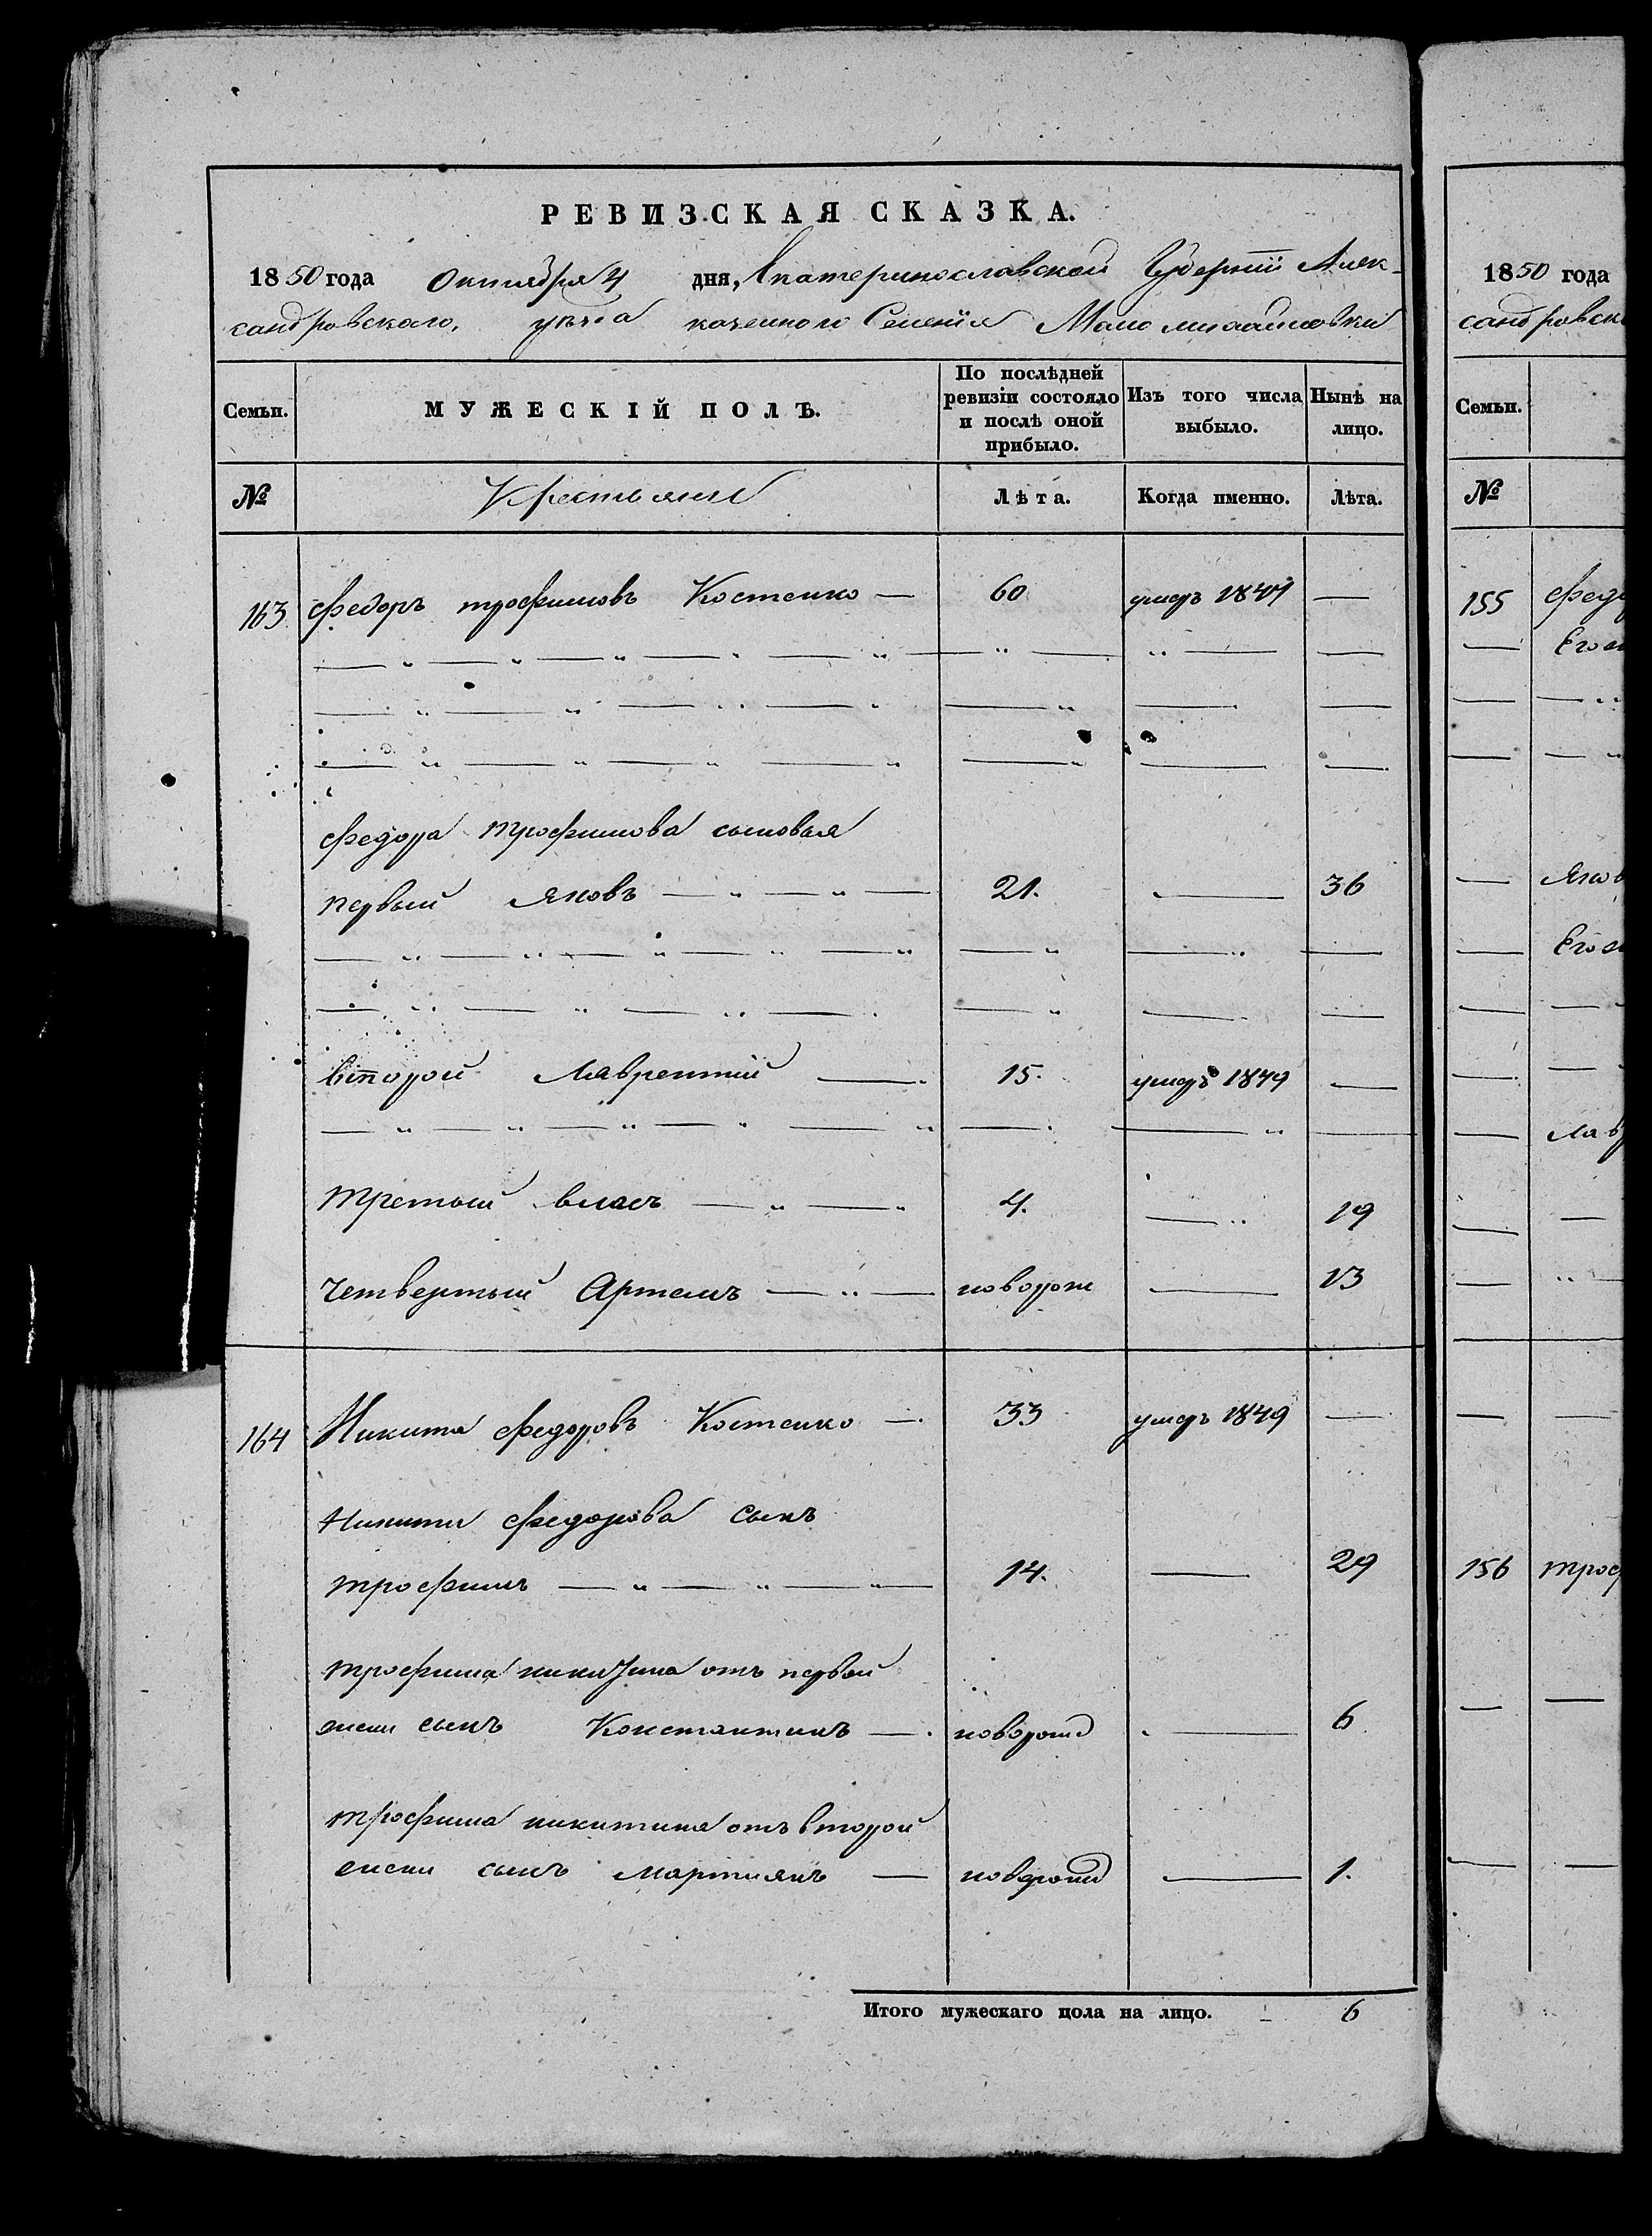 РЕВИЗСКАЯ СКАЗКА.
1850 года Октября 4 дня, Екатеринославской Губернии Алек-
сандровскаго, уезда казенного Селения Мало михайловки
Семьи. МУЖЕСКІЙ ПОЛЪ. По послѣдней ревизіи состояло и послѣ оной прибыло. Изъ того числа выбыло. Нынѣ на лицо.
№ Крестьяни Лѣта. Когда именно. Лѣта.
163 Федоръ трофимовъ Костенко — 60 умеръ 1849 —
Федора трофимова сыновья
первый Яковъ 21. — 36
второй Лаврентий 15. умеръ 1849 —
третьий власъ 4. — 19
четвертый Артемъноворож — 13
164 Никита федоровъ Костенко — 33 умеръ 1849 —
Никиты федорова сынъ
трофимъ 14. — 29
трофима никитина отъ первой
жены сынъ Константинъ —новорожд — 6
трофима никитина отъ второй
жены сынъ мартиянъ — новорожд — 1.
Итого мужескаго пола на лицо. 6
1850 года
сандровск
Семьи.
№
155 Федо
Его
Яков
Его
Лавр
156 троф